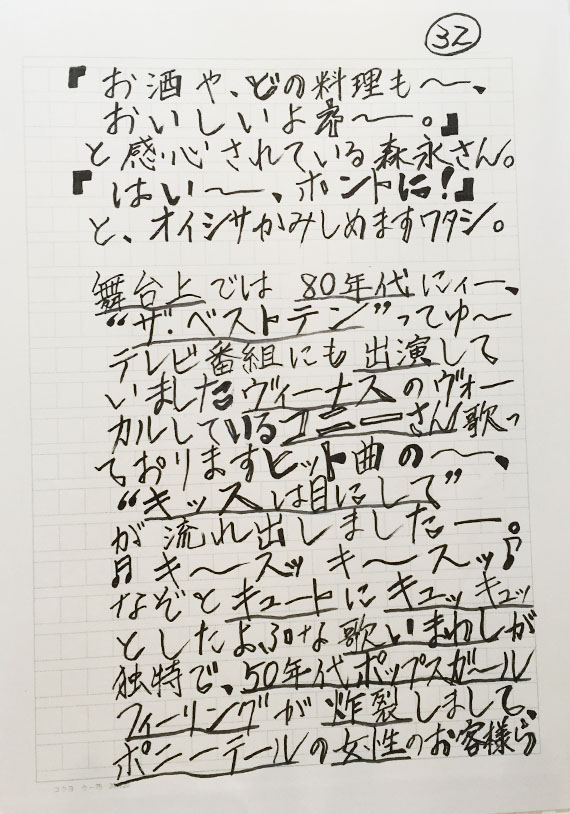 32
『お酒や、どの料理も〜、
おいしいよネ〜。』
と感心されている森永さん。
『はい〜、ホントに!』
と、オイシサかみしめますワタシ。
舞台上では 80年代にィー、
“ザ・ベストテン”ってゆ〜
テレビ番組にも出演して
いました ヴィーナスのヴォー
カルしているコニーさん歌っ
ておりますヒット曲の〜、
“キッスは目にして”
が流れ出しましたー。
♬キ〜スッ キ〜スッ♪
なぞとキュートにキュッキュッ
としたよぷな歌いまわしが
独特で、50年代ポップスガール
フィーリングが炸裂しまして、
ポニーテールの女性のお客様ら
コクヨ